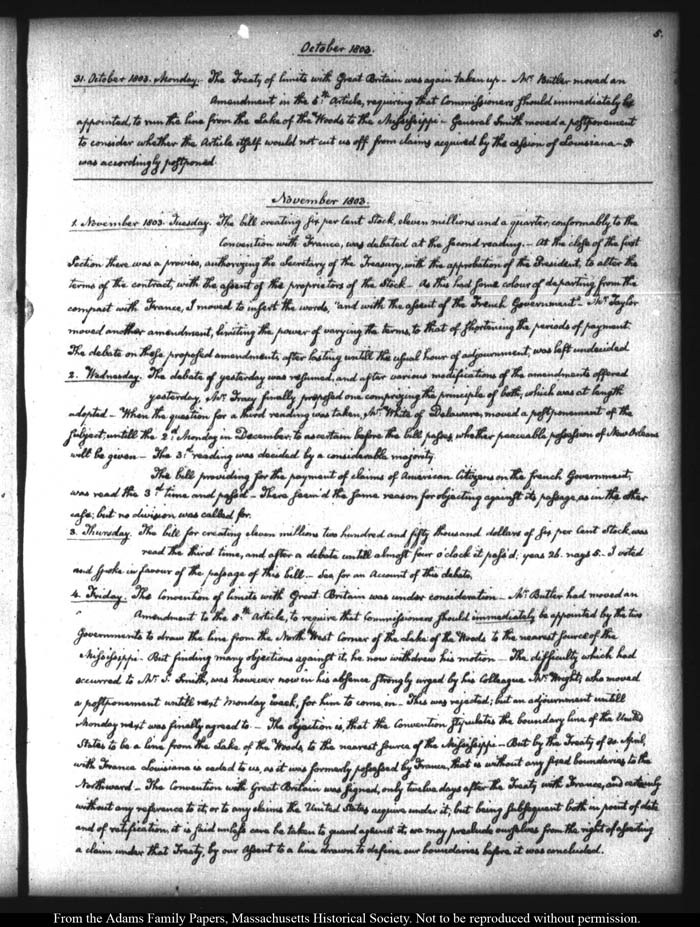 October 1803.
5.
31. October 1803. Monday. The Treaty of limits with Great Britain was again taken up – Mr Butler moved an
Amendment in the 5th Article, requiring that Commissioners should immediately be
appointed, to run the line from the Lake of the Woods to the Mississippi – General Smith moved a postponement
to consider whether the Article itself would not cut us off from claims acquired by the cession of Louisiana – It
was accordingly postponed.
November 1803.
1. November 1803. Tuesday. The bill creating six per Cent Stock, eleven millions and a quarter, conformably to the
Convention with France, was debated at the second reading. – At the close of the first
Section there was a proviso, authorizing the Secretary of the Treasury, with the approbation of the President, to alter the
terms of the contract, with the assent of the proprietors of the Stock – As this had some colour of departing from the
compact with France, I moved to insert the words, "and with the assent of the French Government" – Mr Taylor
moved another amendment, limiting the power of varying the terms, to that of shortening the periods of payment.
The debate on these proposed amendments, after lasting untill the usual hour of adjournment, was left undecided
2. Wednesday. The debate of yesterday was resumed, and after various modifications of the amendments offered
yesterday, Mr Tracy finally proposed one comprizing the principle of both, which was at length
adopted – When the question for a third reading was taken, Mr White of Delaware, moved a postponement of the
subject, untill the 2d Monday in December, to ascertain before the bill passes, whether peaceable possession of New Orleans
will be given – The 3d reading was decided by a considerable majority.
The bill providing for the payment of claims of American Citizens on the french Government,
was read the 3d time and pass'd – There seem'd the same reason for objecting against its passage, as in the other
case; but no division was called for.
3. Thursday. The bill for creating eleven millions two hundred and fifty thousand dollars of six per Cent Stock, was
read the third time, and after a debate untill almost four o'clock it pass'd. yeas 26. nays 5. I voted
and spoke in favour of the passage of this bill – See for an Account of this debate,
4. Friday. The Convention of limits with Great Britain was under consideration – Mr Butler had moved an
Amendment to the 5th Article, to require that Commissioners should immediately be appointed by the two
Governments to draw the line from the North West Corner of the Lake of the Woods to the nearest source of the
Mississippi – But finding many objections against it, he now withdrew his motion – The difficulty which had
occurred to Mr S. Smith, was however now in his absence strongly urged by his Colleague Mr Wright, who moved
a postponement untill next Monday week, for him to come in – This was rejected; but an adjournment untill
Monday next was finally agreed to – The objection is, that the Convention stipulates the boundary line of the United
States to be a line from the Lake of the Woods, to the nearest source of the Mississippi – But by the Treaty of 30 April,
with France Louisiana is ceded to us, as it was formerly possessed by France, that is without any fixed boundaries to the
Northward – The Convention with Great Britain was signed, only twelve days after the Treaty with France, and certainly
without any reference to it, or to any claims the United States acquire under it; but being subsequent both in point of date
and of ratification, it is said unless care be taken to guard against it, we may preclude ourselves from the right of asserting
a claim under that Treaty, by our assent to a line drawn to define our boundaries before it was concluded.
From the Adams Family Papers, Massachusetts Historical Society. Not to be reproduced without permission.